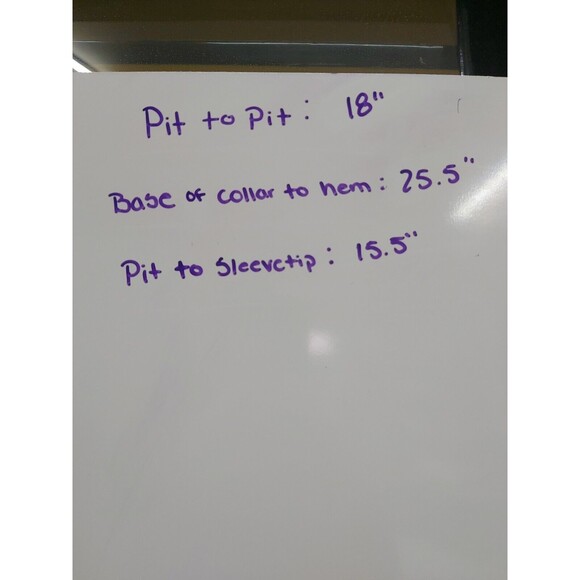 Pit to Pit: 18"
Base of collar to hem: 25.5"
Pit to Sleevetip: 15.5"